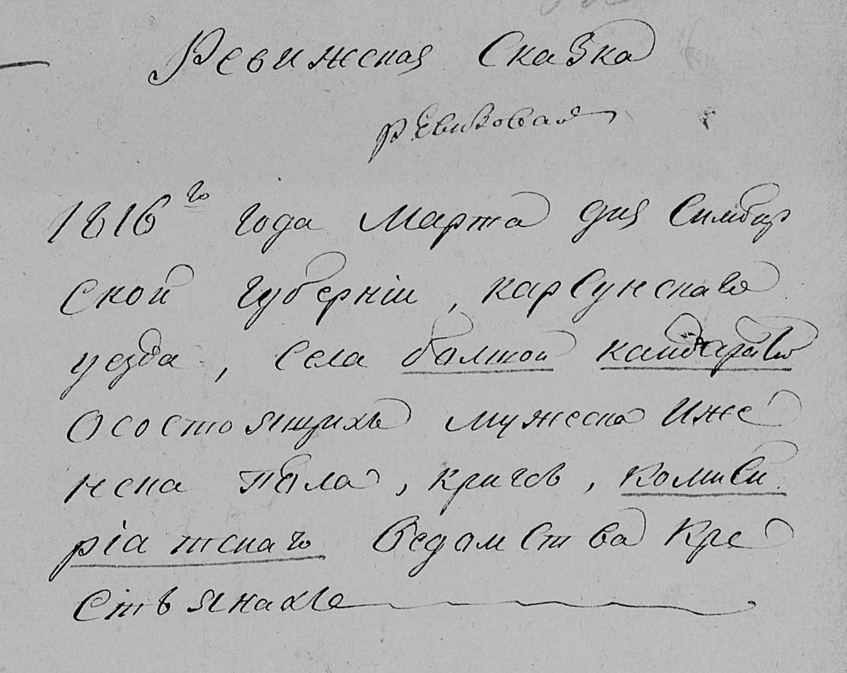 Ревижская Сказка
ревизовая
1816го года Марта дня Симбир
ской губернiи, карсунскаго
уезда, села болшой кандарати
О состоящихъ мужеска и же
нска пола, кригсъ, комиси
рiатскаго ведомства кре
стьянахъ